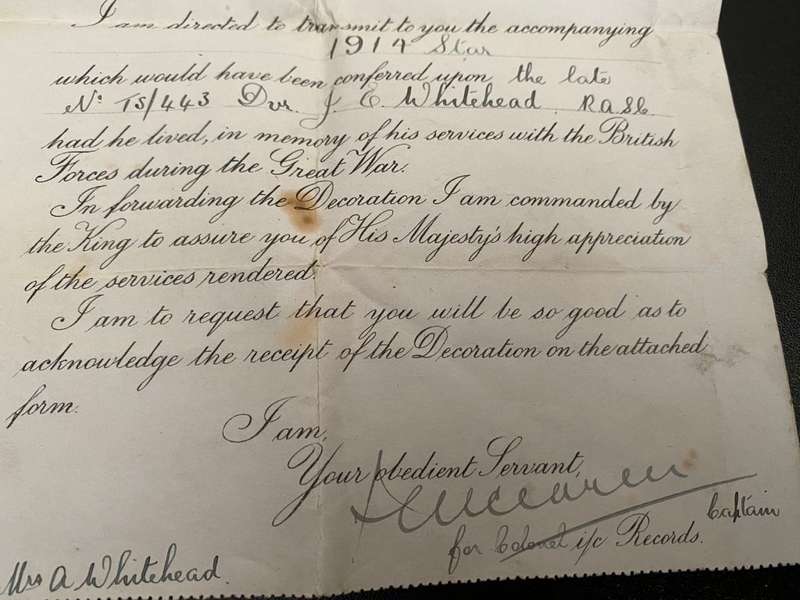 I am directed to transmit to you the accompanying
1914 Star
which would have been conferred upon the late
No TS/443 Dvr. J. E. Whitehead. RASC
had he lived, in memory of his services with the British
Forces during the Great War.
In forwarding the Decoration I am commanded by
the King to assure you of His Majesty's high appreciation
of the services rendered.
I am to request that you will be so good as to
acknowledge the receipt of the Decoration on the attached
form.
I am,
Your obedient Servant,
Captain
for Colonel i/c Records.
Mrs A Whitehead.